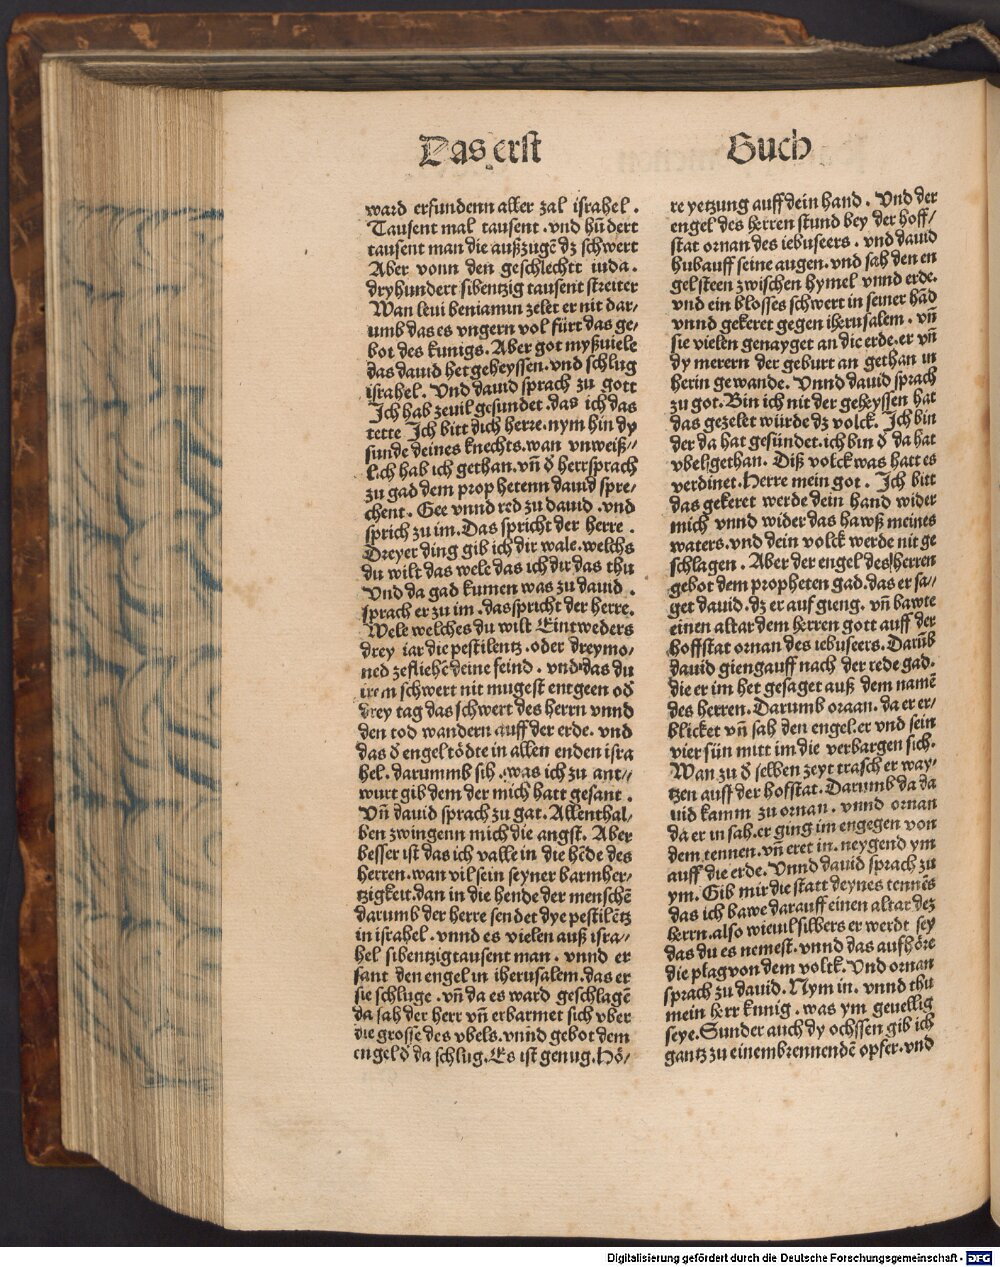 Das erst
Buch
ward erfundenn aller zal israhel.
Tausent mal tausent. vnd hūdert
tausent man die außzugē dz schwert
Aber vonn den geschlechtt iuda.
dryhundert sibentzig tausent streiter
Wan leui beniamin zelet er nit dar/
umb das es vngern vol fürt das ge/
bot des kunigs. Aber got myßuiele
das dauid het geheyssen. vnd schlug
israhel. Vnd dauid sprach zu gott
Ich hab zeuil gesundet. das ich das
tette Ich bitt dich herre. nym hin dy
sunde deines knechts. wan vnweiß//
lich hab ich gethan. vñ ð herr sprach
zu gad dem prop hetenn dauid spre/
chent. Gee vnnd red zu dauid. vnd
sprich zu im. Das spricht der herre.
Dreyer ding gib ich dir wale. welchs
du wilt das wele das ich dir das thu
Vnd da gad kumen was zu dauid.
sprach er zu im. das spricht der herre.
Wele welches du wilt Eintweders
drey iar die pestilentz. oder drey mo/
ned zefliehē deine feind. vnd das du
irem schwert nit mugest entgeen oð
drey tag das schwert des herrn vnnd
den tod wandern auff der erde. vnd
das ð engel tödte in allen enden isra
hel. darummb sih. was ich zu ant//
wurt gib dem der mich hatt gesant.
Vñ dauid sprach zu gat. Allenthal/
ben zwingenn mich die angst. Aber
besser ist das ich valle in die hēde des
herren. wan vil sein seyner barmher/
tzigkeit. dan in die hende der menschē
darumb der herre sendet dye pestilētz
in israhel. vnnd es vielen auß isra//
hel sibentzig tausent man. vnnd er
sant den engel in iherusalem. das er
sie schluge. vñ da es ward geschlagē
da sah der herr vñ erbarmet sich vber
die grosse des vbels. vnnd gebot dem
engel ð da schlug. Es ist genug. Hö/
re yetzung auff dein hand. Vnd der
engel des herren stund bey der hoff/
stat ornan des iebuseers. vnd dauid
hub auff seine augen. vnd sah den en
gel steen zwischen hymel vnnd erde.
vnd ein blosses schwert in seiner hād
vnnd gekeret gegen iherusalem. vñ
sie vielen genayget an die erde. er vñ
dy merern der geburt an gethan in
herin gewande. Vnnd dauid sprach
zu got. Bin ich nit der geheyssen hat
das gezelet würde dz volck. Ich bin
der da hat gesündet. ich bin ð da hat
vbel gethan. Diß volck was hatt es
verdinet. Herre mein got. Ich bitt
das gekeret werde dein hand wider
mich vnnd wider das hawß meines
waters. vnd dein volck werde nit ge
schlagen. Aber der engel des herren
gebot dem propheten gad. das er sa//
get dauid. dz er auf gieng. vñ bawte
einen altar dem herren gott auff der
hoffstat ornan des iebuseers. Darūb
dauid gieng auff nach der rede gad.
die er im het gesaget auß dem namē
des herren. Darumb ornan. da er er/
blicket vñ sah den engel. er vnd sein
vier sün mitt im die verbargen sich.
Wan zu ð selben zeyt trasch er way/
tzen auff der hofstat. Darumb da da
uid kamm zu ornan. vnnd ornan
da er in sah. er ging im engegen von
dem tennen. vñ eret in. neygend ym
auff die erde. Vnnd dauid sprach zu
ym. Gib mir die statt deynes tennēs
das ich bawe darauff einen altar dez
herrn. also wieuil silbers er werdt sey
das du es nemest. vnnd das aufhöre
die plag von dem volck. Vnd ornan
sprach zu dauid. Nym in. vnnd thu
mein herr kunig. was ym geuellig
seye. Sunder auch dy ochssen gib ich
gantz zu einem brennendē opfer. vnd
Digitalisierung gefördert durch die Deutsche Forschungsgemeinschaft - DFG